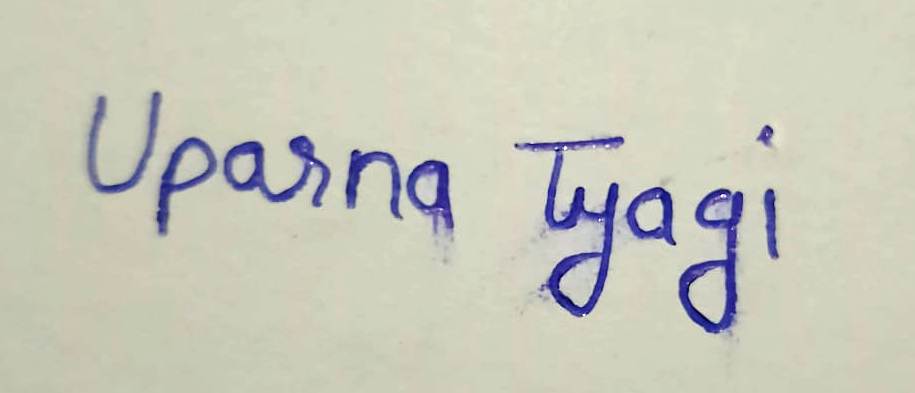 Uparna Tyagi